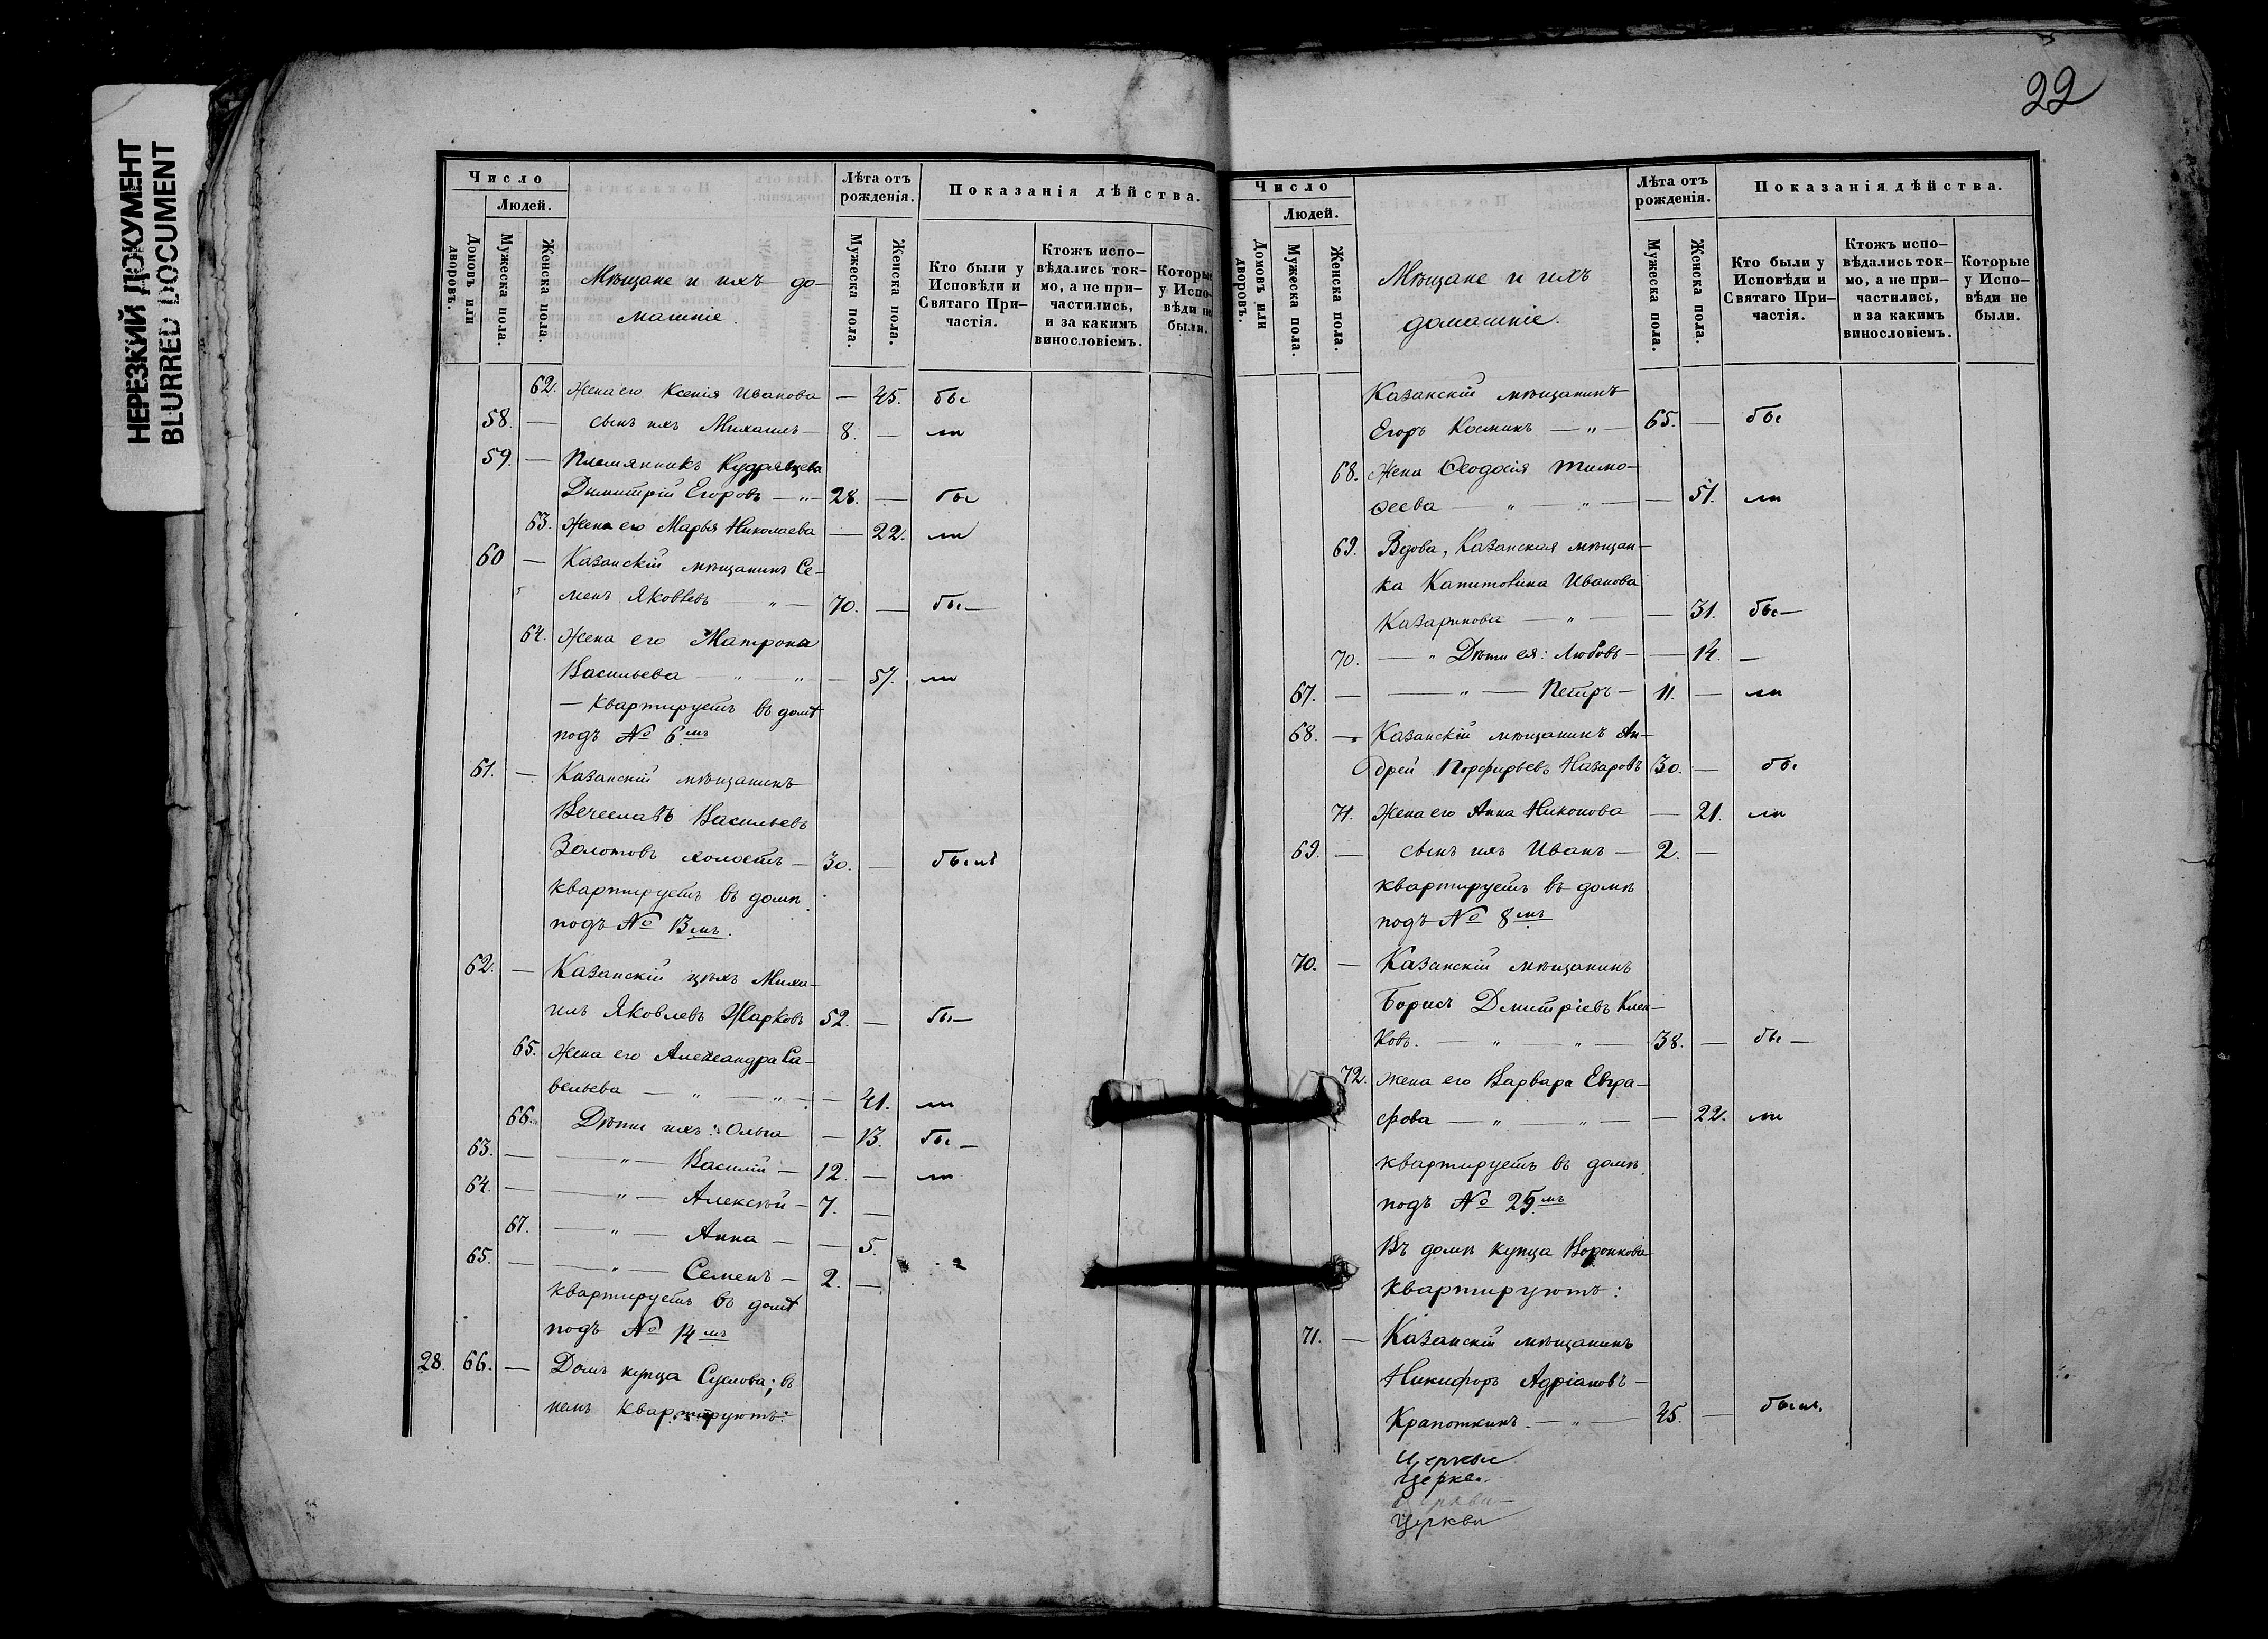 НЕРЕЗКИЙ ДОКУМЕНТ
BLURRED DOCUMENT
22
Число
Людей.
Домовъ или дворовъ.
Мужеска пола.
Женска пола.
Мѣщане и ихъ до-
машніе.
Лѣта отъ рожденія.
Мужеска пола.
Женска пола.
Показанія дѣйства.
Кто были у Исповѣди и Святаго При-частія.
Ктожъ испо-вѣдались ток-мо, а не при-частились, и за какимъ винословіемъ.
Которые у Испо-вѣди не были.
62. Жена его Ксенія Иванова — 45. бы
58. — сынъ ихъ Михаилъ — 8. — ли
59. — Племянникъ Кудрявцева
Димитрій Егоровъ — „ — 28. — бы
63. Жена его Марья Николаева — 22. ли
60 — Казанскій мѣщанинъ Се-
менъ Яковлевъ — „ — 70. — бы —
64. Жена его Матрона
Васильева — „ — „ — 57. ли
— Квартируетъ въ домѣ
подъ № 6мъ
61. — Казанскій мѣщанинъ
Вечеславъ Васильевъ
Золотовъ холостъ — 30. — былъ
квартируетъ въ домѣ
подъ № 13мъ.
62. — Казанскій цѣхъ Миха-
илъ Яковлевъ Жарковъ 52. — бы —
65. Жена его Александра Са-
вельева — „ — „ — — 41. ли
66. Дѣти ихъ: Ольга — 13. бы —
63. — — „ — Василій — 12. — ли
64. — — „ — Алексѣй — 7. —
67. — „ — Анна — — 5.
65. — — „ — Семенъ — 2. —
квартируетъ въ домѣ
подъ № 14мъ
28. 66. — Домъ купца Суслова; въ
немъ квартируютъ:
Число
Людей.
Домовъ или дворовъ.
Мужеска пола.
Женска пола.
Мѣщане и ихъ
домашніе.
Лѣта отъ рожденія.
Мужеска пола.
Женска пола.
Показанія дѣйства.
Кто были у Исповѣди и Святаго При-частія.
Ктожъ испо-вѣдались ток-мо, а не при-частились, и за какимъ винословіемъ.
Которые у Испо-вѣди не были.
Казанскій мѣщанинъ
Егоръ Косминъ — „ — 65. — бы
68. Жена Ѳеодосія Тимо-
ѳеева — „ — „ — — 51. ли
69. Вдова, Казанская мѣщан-
ка Капитолина Иванова
Казаринова — „ — — 31. бы —
70. — „ Дѣти ея: Любовь — — 14. —
67. — — „ — Петръ — 11. — ли
68. — Казанскій мѣщанинъ Ан-
дрей Порфирьевъ Назаровъ 30. — бы
71. Жена его Анна Никонова — 21. ли
69. — сынъ ихъ Иванъ — 2. —
квартируетъ въ домѣ
подъ № 8мъ
70. — Казанскій мѣщанинъ
Борисъ Дмитріевъ Клен-
ковъ. — „ — „ — 38. — бы —
72. жена его Варвара Евгра-
фова — „ — „ — — 22. ли
квартируетъ въ домѣ
подъ № 25мъ
Въ домѣ купца Воронкова
квартируютъ:
71. — Казанскій мѣщанинъ
Никифоръ Адріановъ —
Крапоткинъ. — „ — 45. — былъ.
Церкви
Церкви
Церкви
Церкви